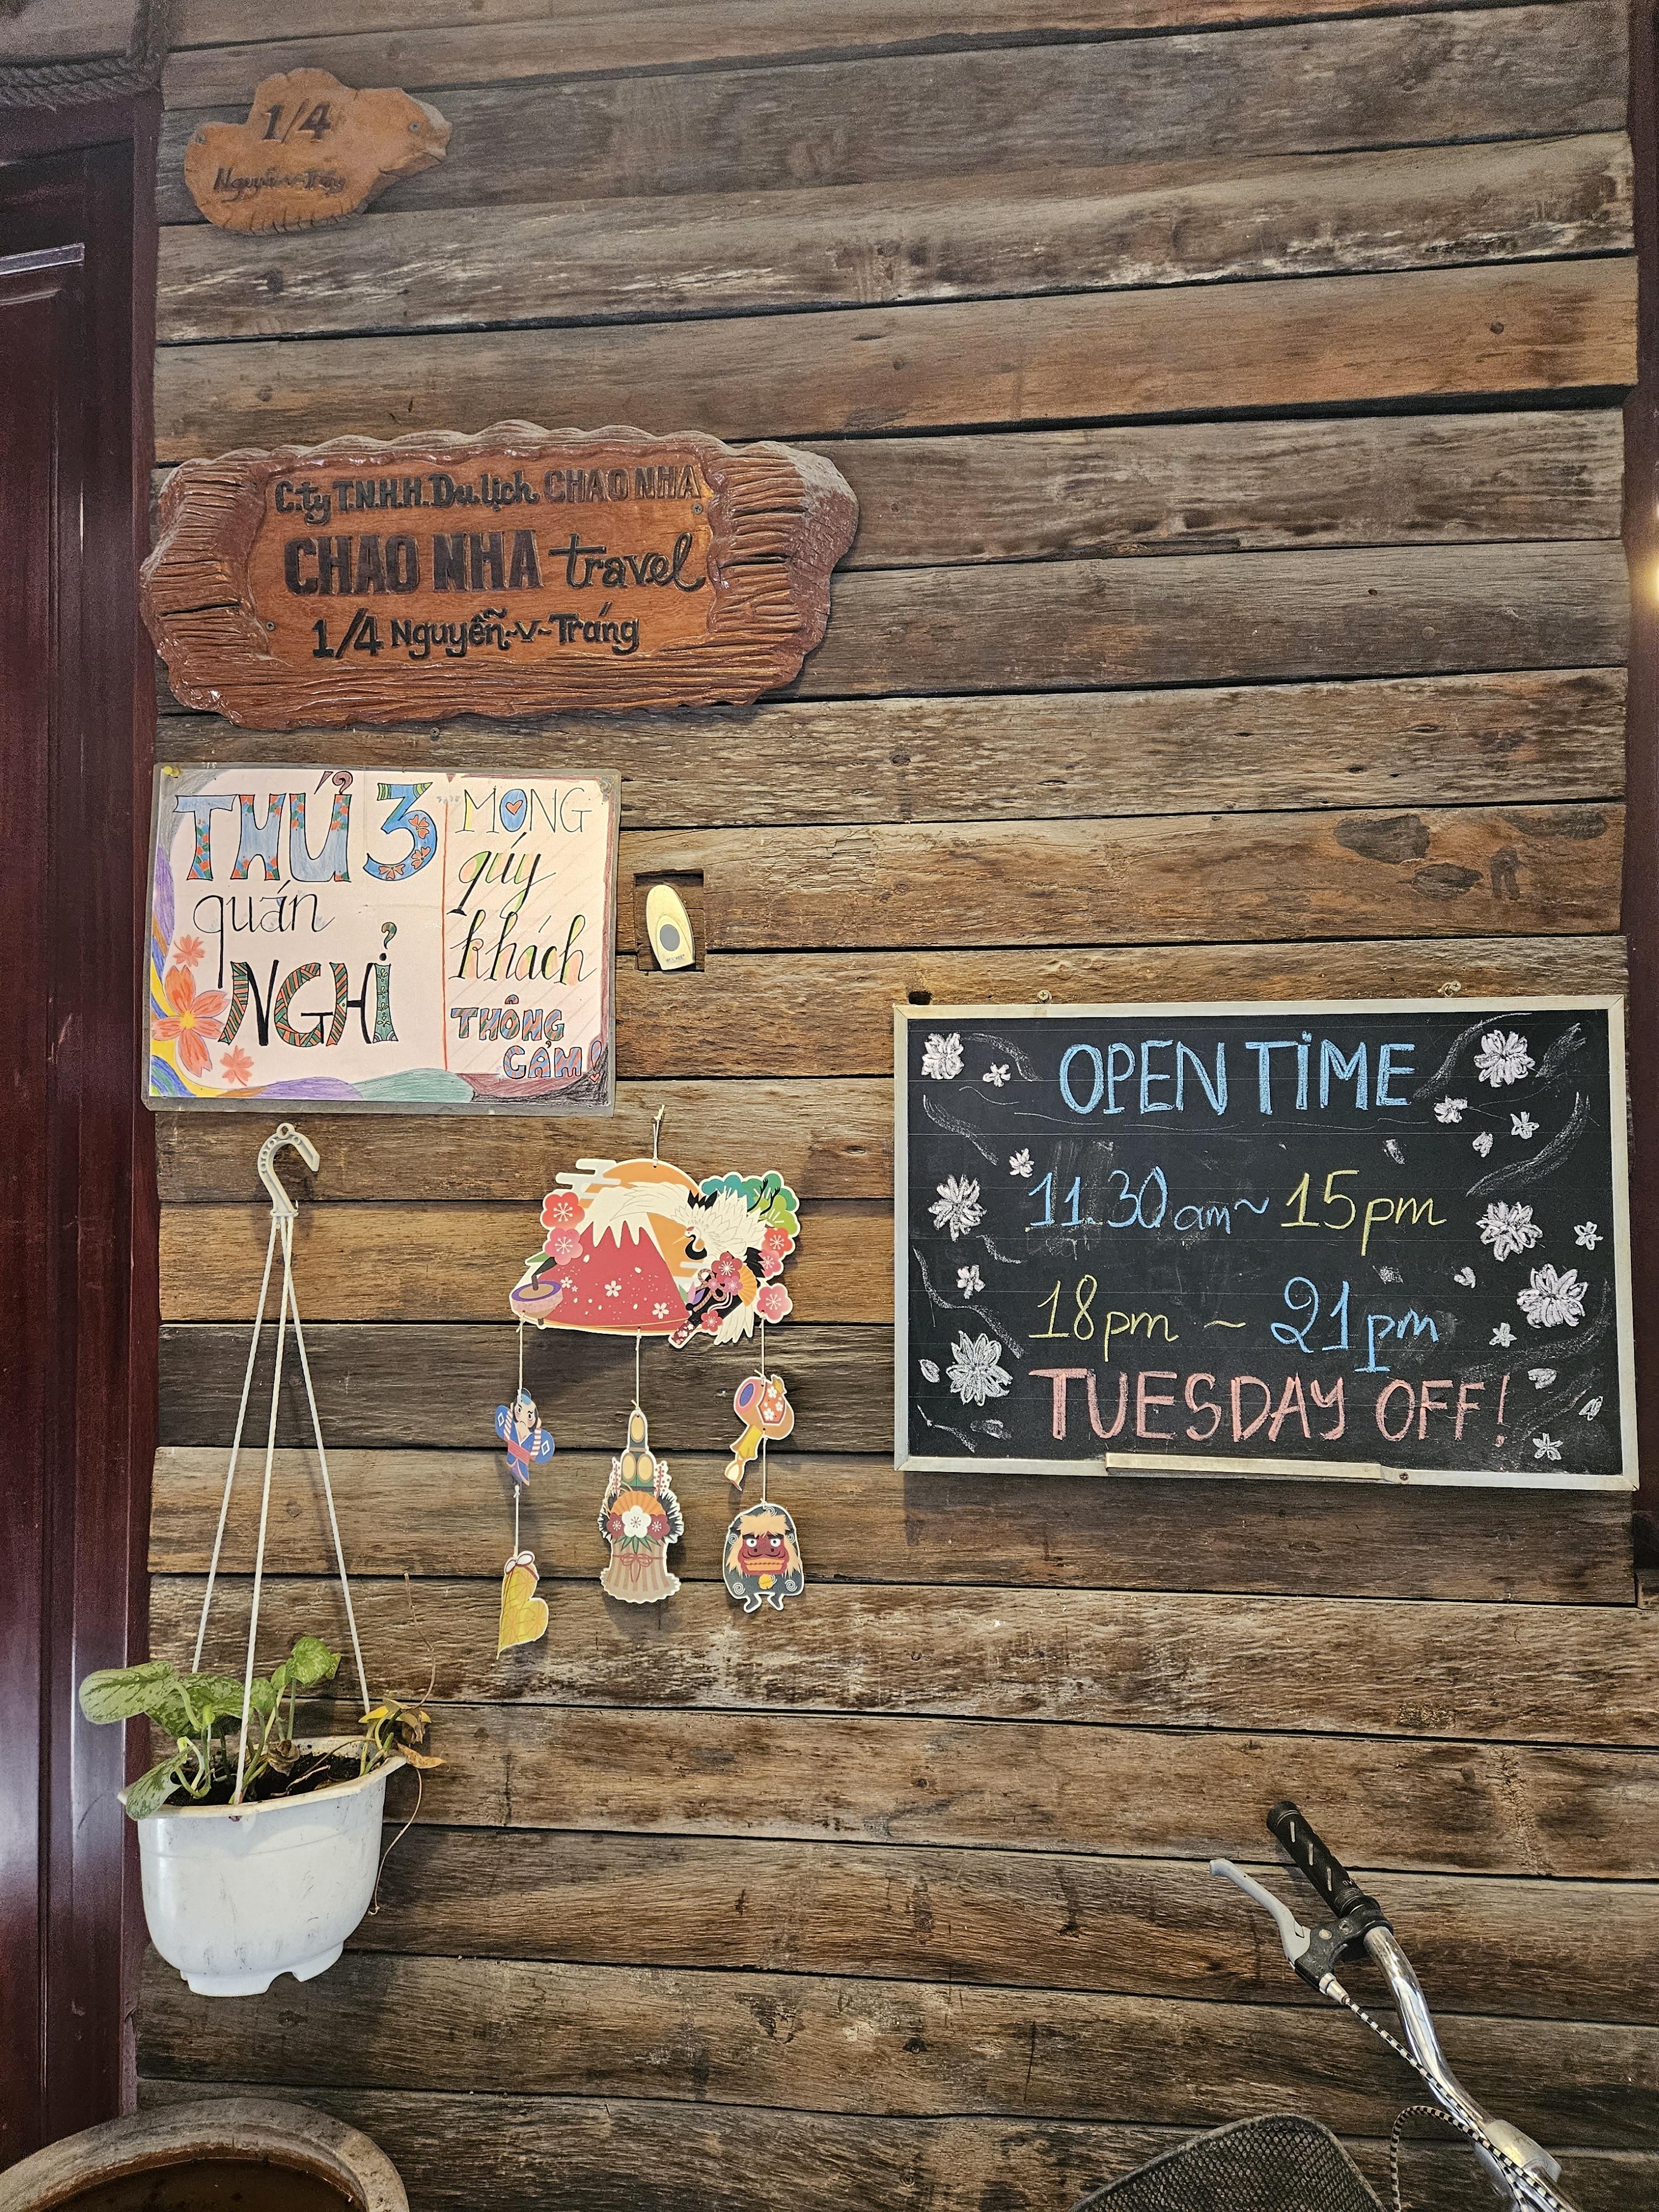 1/4
Nguyễn~v~Tráng
C.ty T.N.H.H. Du lịch CHAO NHA
CHAO NHA travel
1/4 Nguyễn~v~Tráng
THỨ 3
quán
NGHỈ
MONG
qúy
khách
THÔNG
CẢM!
OPEN TIME
11.30 am ~ 15 pm
18 pm ~ 21 pm
TUESDAY OFF!